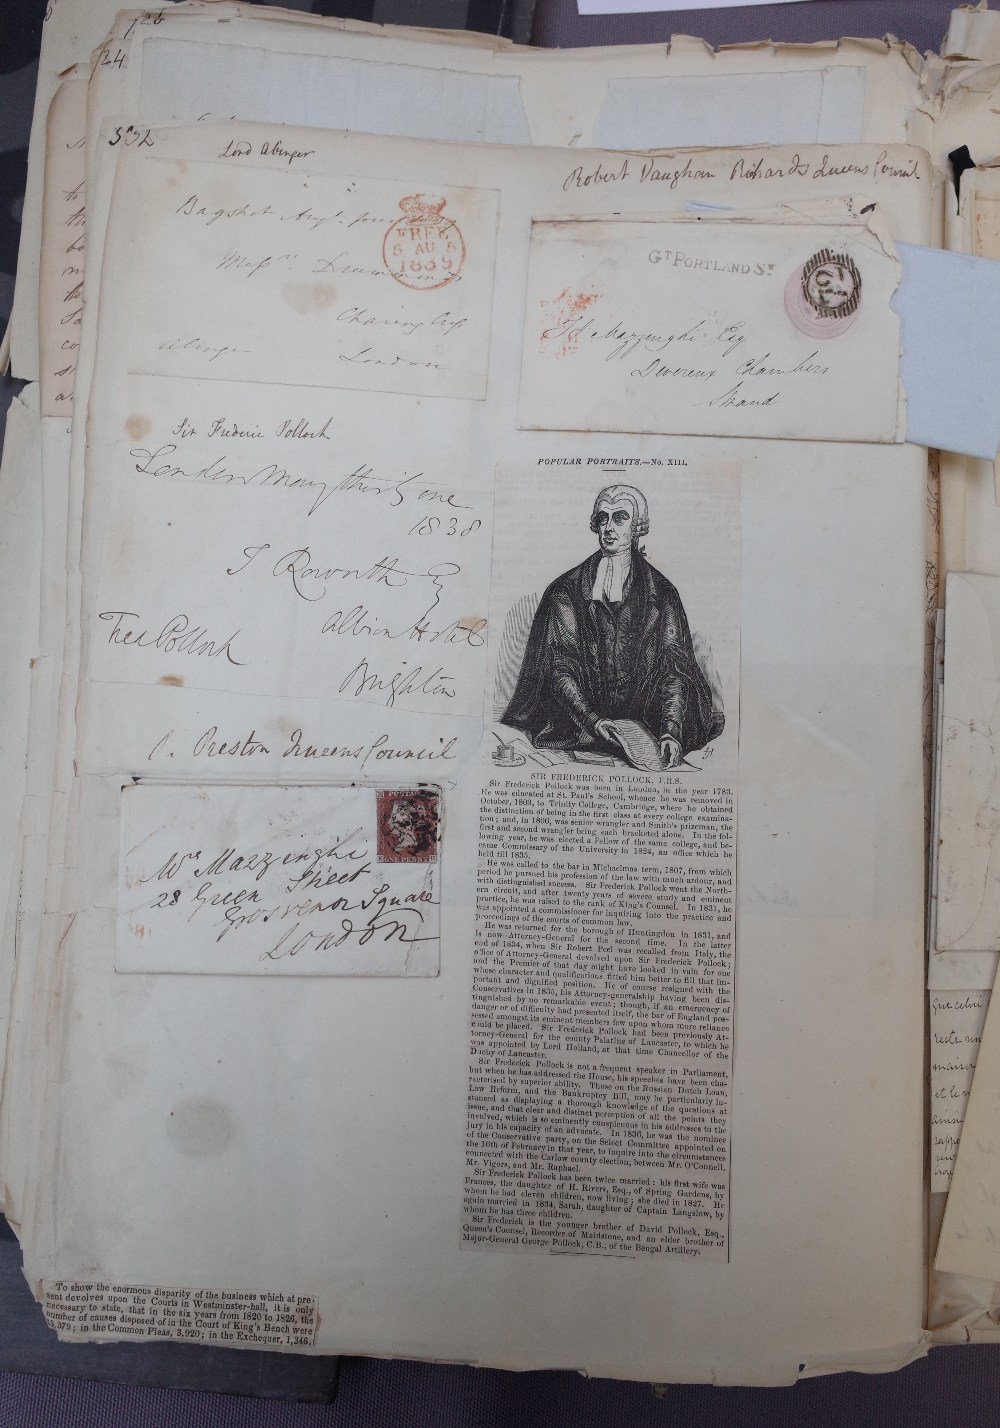 726
724
302
Lord Abinger
Robert Vaughan Richards Queens Council
Bagshot Augt four
FREE
5 AU 5
1839
Messrs Drummonds
Charing Cross
Abinger London
GT PORTLAND ST
T J Mazzinghi Esq
Devereux Chambers
Strand
Sir Frederic Pollock
London May thirty one
1838
J Roworth Esq
Fred Pollock Albion Hotel
Brighton
Preston Queens Council
POSTAGE
ONE PENNY
Mrs Mazzinghi
28 Green Street
Grosvenor Square
London
POPULAR PORTRAITS.—No. XIII.
SIR FREDERICK POLLOCK, F.R.S.
Sir Frederick Pollock was born in London, in the year 1783.
He was educated at St. Paul's School, whence he was removed in
October, 1803, to Trinity College, Cambridge, where he obtained
the distinction of being in the first class at every college examina-
tion; and, in 1806, was senior wrangler and Smith's prizeman, the
first and second wrangler being each bracketed alone. In the fol-
lowing year, he was elected a Fellow of the same college, and be-
came Commissary of the University in 1824, an office which he
held till 1835.
He was called to the bar in Michaelmas term, 1807, from which
period he pursued his profession of the law with much ardour, and
with distinguished success. Sir Frederick Pollock went the North-
ern circuit, and after twenty years of severe study and eminent
practice, he was raised to the rank of King's Counsel. In 1831, he
was appointed a commissioner for inquiring into the practice and
proceedings of the courts of common law.
He was returned for the borough of Huntingdon in 1831, and
is now Attorney-General for the second time. In the latter
end of 1834, when Sir Robert Peel was recalled from Italy, the
office of Attorney-General devolved upon Sir Frederick Pollock;
and the Premier of that day might have looked in vain for one
whose character and qualifications fitted him better to fill that im-
portant and dignified position. He of course resigned with the
Conservatives in 1835, his Attorney-generalship having been dis-
tinguished by no remarkable event; though, if an emergency of
danger or of difficulty had presented itself, the bar of England pos-
sessed amongst its eminent members few upon whom more reliance
could be placed. Sir Frederick Pollock had been previously At-
torney-General for the county Palatine of Lancaster, to which he
was appointed by Lord Holland, at that time Chancellor of the
Duchy of Lancaster.
Sir Frederick Pollock is not a frequent speaker in Parliament,
but when he has addressed the House, his speeches have been cha-
racterised by superior ability. Those on the Russian Dutch Loan,
Law Reform, and the Bankruptcy Bill, may be particularly in-
stanced as displaying a thorough knowledge of the questions at
issue, and that clear and distinct perception of all the points they
involved, which is so eminently conspicuous in his addresses to the
jury in his capacity of an advocate. In 1836, he was the nominee
of the Conservative party, on the Select Committee appointed on
the 16th of February in that year, to inquire into the circumstances
connected with the Carlow county election, between Mr. O'Connell,
Mr. Vigors, and Mr. Raphael.
Sir Frederick Pollock has been twice married: his first wife was
Frances, the daughter of H. Rivers, Esq., of Spring Gardens, by
whom he had eleven children, now living; she died in 1827. He
again married in 1834, Sarah, daughter of Captain Langslow, by
whom he has three children.
Sir Frederick is the younger brother of David Pollock, Esq.,
Queen's Counsel, Recorder of Maidstone, and an elder brother of
Major-General George Pollock, C.B., of the Bengal Artillery.
To show the enormous disparity of the business which at pre-
sent devolves upon the Courts in Westminster-hall, it is only
necessary to state, that in the six years from 1820 to 1826, the
number of causes disposed of in the Court of King's Bench were
,379; in the Common Pleas, 3,920; in the Exchequer, 1,346.
que celui
et le